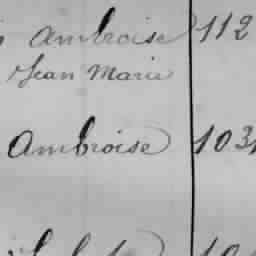 Ambroise 112
Jean Marie
Ambroise 103